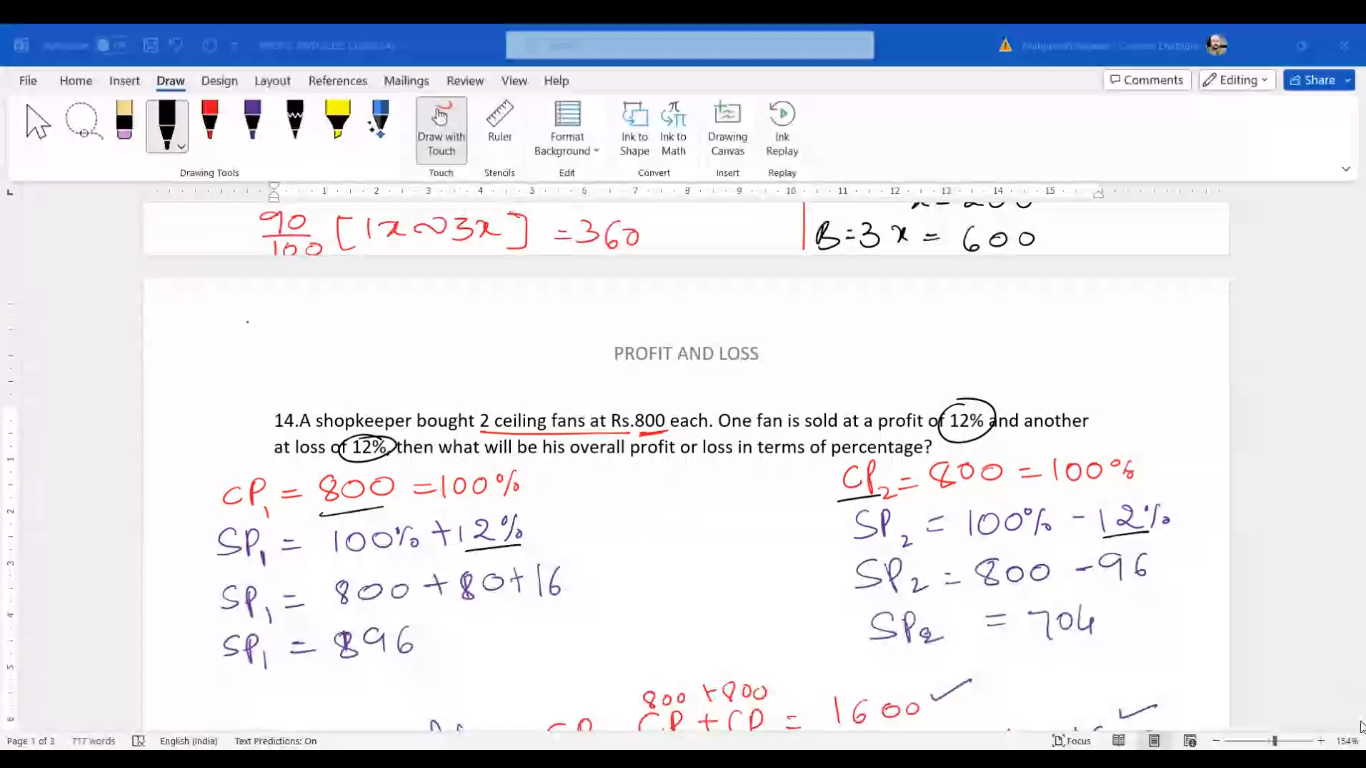 File Home Insert Draw Design Layout References Mailings Review View Help Comments Editing Share
Draw with Touch Ruler Format Background Ink to Shape Ink to Math Drawing Canvas Ink Replay
Drawing Tools Touch Stencils Edit Convert Insert Replay
1 1 2 3 4 5 6 7 8 9 10 11 12 13 14 15
90/100 [1x ~ 3x] = 360
B = 3x = 600
PROFIT AND LOSS
14.A shopkeeper bought 2 ceiling fans at Rs.800 each. One fan is sold at a profit of 12% and another
at loss of 12%, then what will be his overall profit or loss in terms of percentage?
CP1 = 800 = 100%
SP1 = 100% + 12%
SP1 = 800 + 80 + 16
SP1 = 896
CP2 = 800 = 100%
SP2 = 100% - 12%
SP2 = 800 - 96
SP2 = 704
800 + 800
CP + CP = 1600
Page 1 of 3 717 words English (India) Text Predictions: On Focus 154%